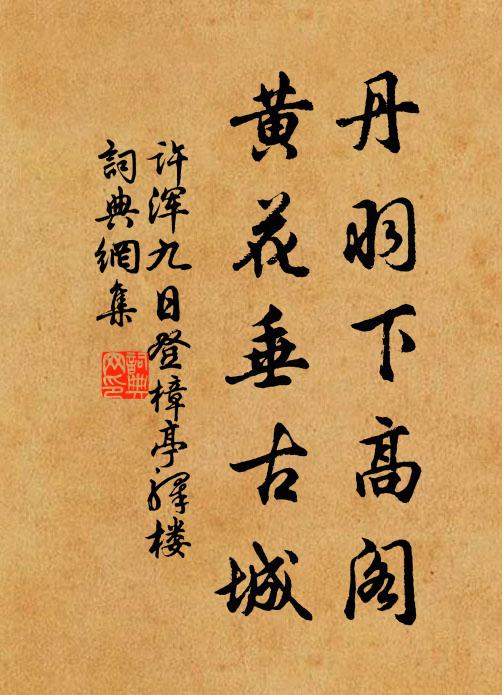 丹羽下高阁
黄花垂古城
许浑九日登樟亭驿楼
詞典網集
詞典网印